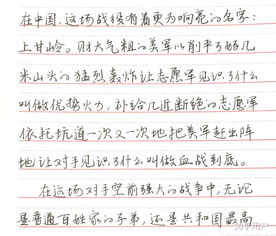 在中国,这场战役有着更为响亮的名字:
上甘岭。财大气粗的美军以削平了好几
米山头的猛烈轰炸让志愿军见识了什么
叫做优势火力,补给几近断绝的志愿军
依托坑道一次又一次地把美军赶出阵
地让对手见识了什么叫做血战到底。
在这场对手空前强大的战争中,无论
是普通百姓家的子弟,还是共和国最高